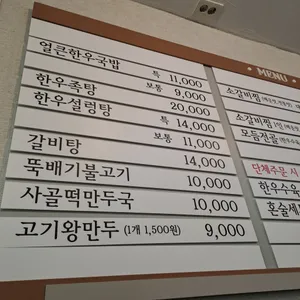 MENU
얼큰한우국밥 특 11,000
보통 9,000
한우족탕 20,000
한우설렁탕 특 14,000
보통 11,000
갈비탕 14,000
뚝배기불고기 10,000
사골떡만두국 10,000
고기왕만두 (1개 1,500원) 9,000
소갈비찜
소갈비찜
모듬전골
단체주문 시
한우수육
혼술세트